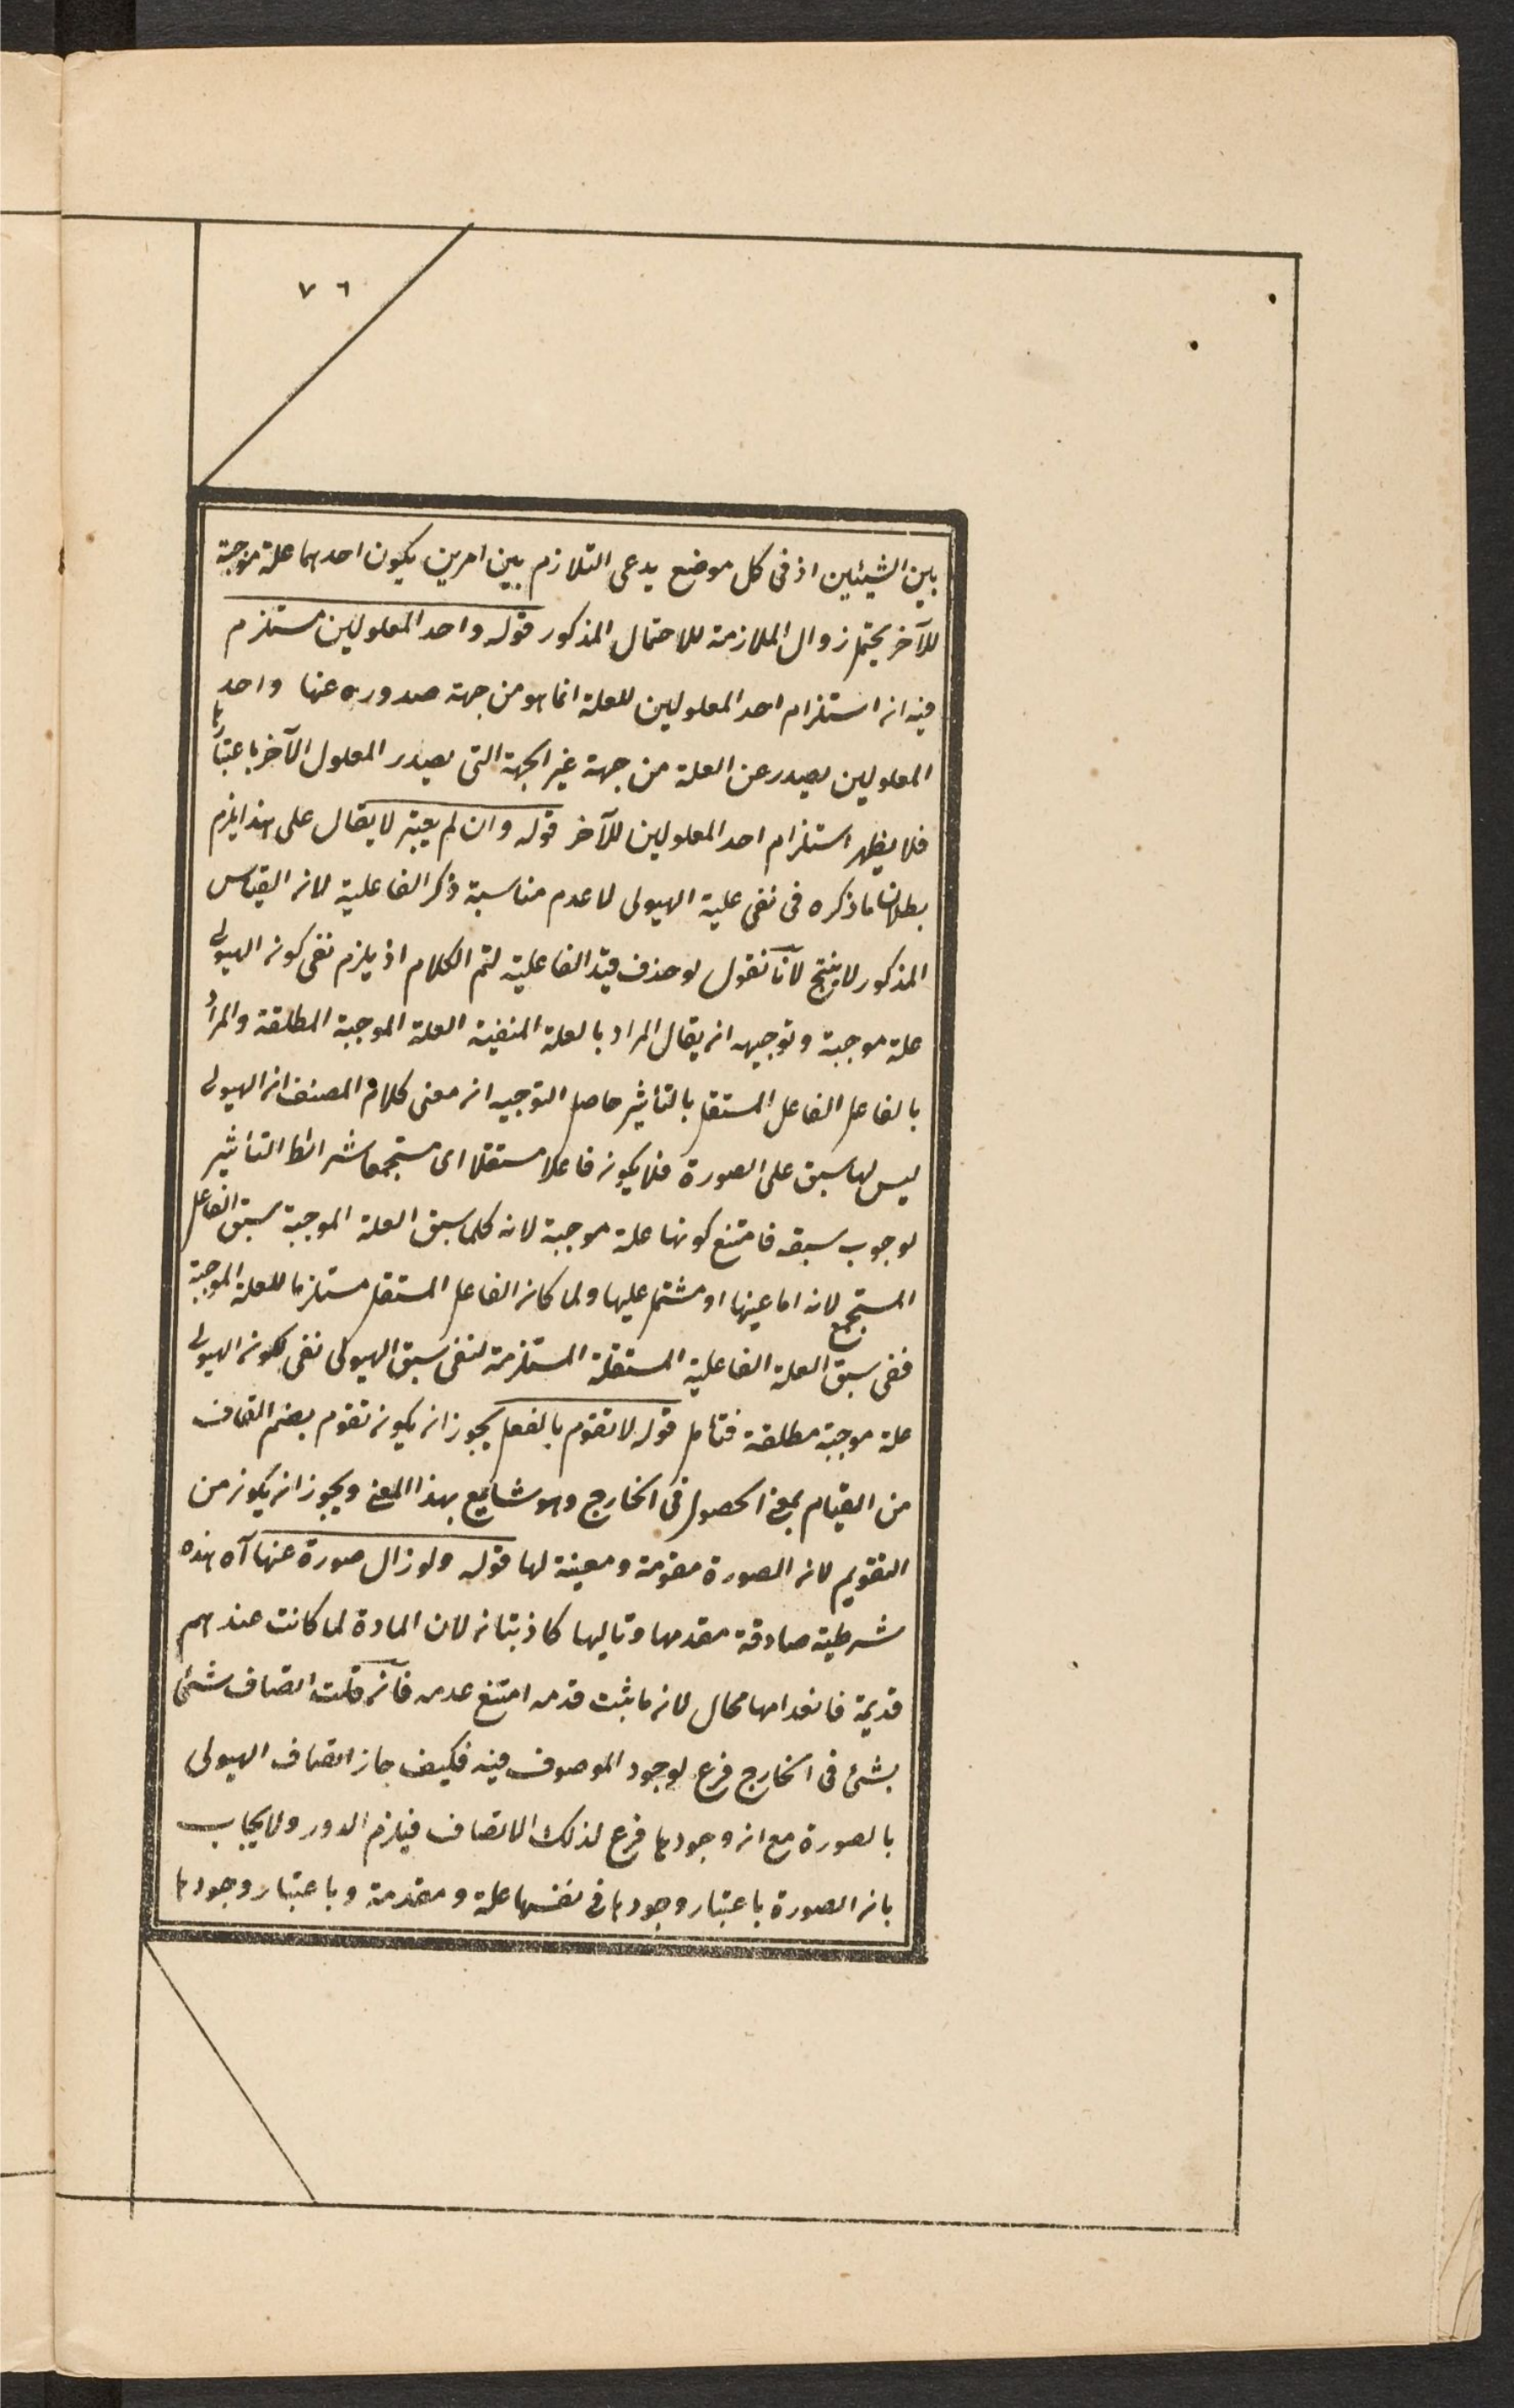 ٧٦
بين الشيئين اذ فى كل موضع يدعى التلازم بين امرين يكون احدهما علة موجبة
للآخر يحتمل زوال الملازمة للاحتمال المذكور قوله واحد المعلولين مستلزم
فيه ان استلزام احد المعلولين للعلة انما هو من جهة صدوره عنها واحد
المعلولين يصدر عن العلة من جهة غير الجهة التى يصدر المعلول الآخر باعتبارها
فلا يظهر استلزام احد المعلولين للآخر قوله وان لم يعتبر لا يقال على هذا يلزم
بطلان ما ذكره فى نفى علية الهيولى لا عدم مناسبة ذكر الفاعلية لان القياس
المذكور لا ينتج لآنا نقول لو حذف قيد الفاعلية لتم الكلام اذ يلزم نفى كون الهيولى
علة موجبة وتوجيهه ان يقال المراد بالعلة المنفية العلة الموجبة المطلقة والمراد
بالفاعل الفاعل المستقل بالتأثير حاصل التوجيه ان معنى كلام المصنف ان الهيولى
ليس لها سبق على الصورة فلا يكون فاعلا مستقلا اى مستجمعا شرائط التأثير
لوجوب سبقه فامتنع كونها علة موجبة لانه كلما سبق العلة الموجبة سبق الفاعل
المستجمع لانه اما عينها او مشتمل عليها ولما كان الفاعل المستقل مستلزما للعلة الموجبة
ففى سبق العلة الفاعلية المستقلة المستلزمة لنفى سبق الهيولى نفى لكون الهيولى
علة موجبة مطلقة فتأمل قوله لا تقوم بالفعل يجوز ان يكون تقوم بضم القاف
من القيام بمعنى الحصول فى الخارج وهو شايع بهذا المعنى ويجوز ان يكون من
التقويم لان الصورة مقومة ومعينة لها قوله ولو زال صورة عنها آه هذه
شرطية صادقة مقدمها وتاليها كاذبتان لان المادة لما كانت عندهم
قديمة فانعدامها محال لان ما ثبت قدمه امتنع عدمه فآن قلت اتصاف شئ
بشئ فى الخارج فرع لوجود الموصوف فيه فكيف جاز اتصاف الهيولى
بالصورة مع ان وجودها فرع لذلك الاتصاف فيلزم الدور ولا يجاب
بان الصورة باعتبار وجودها فى نفسها علة ومقدمة وباعتبار وجودها